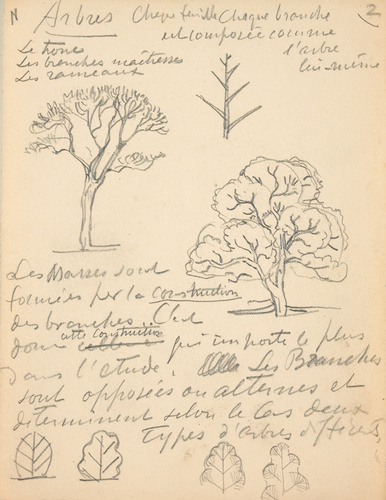 Arbres
2
Chaque feuille Chaque branche
est composée comme
l'arbre
lui-même
Le tronc
Les branches maîtresses
Les rameaux
Les Masses sont
formées par la construction
des branches. C'est
donc cette construction qui importe le plus
dans l'étude. Les Branches
sont opposées ou alternes et
déterminent selon le cas deux
types d'arbres différents